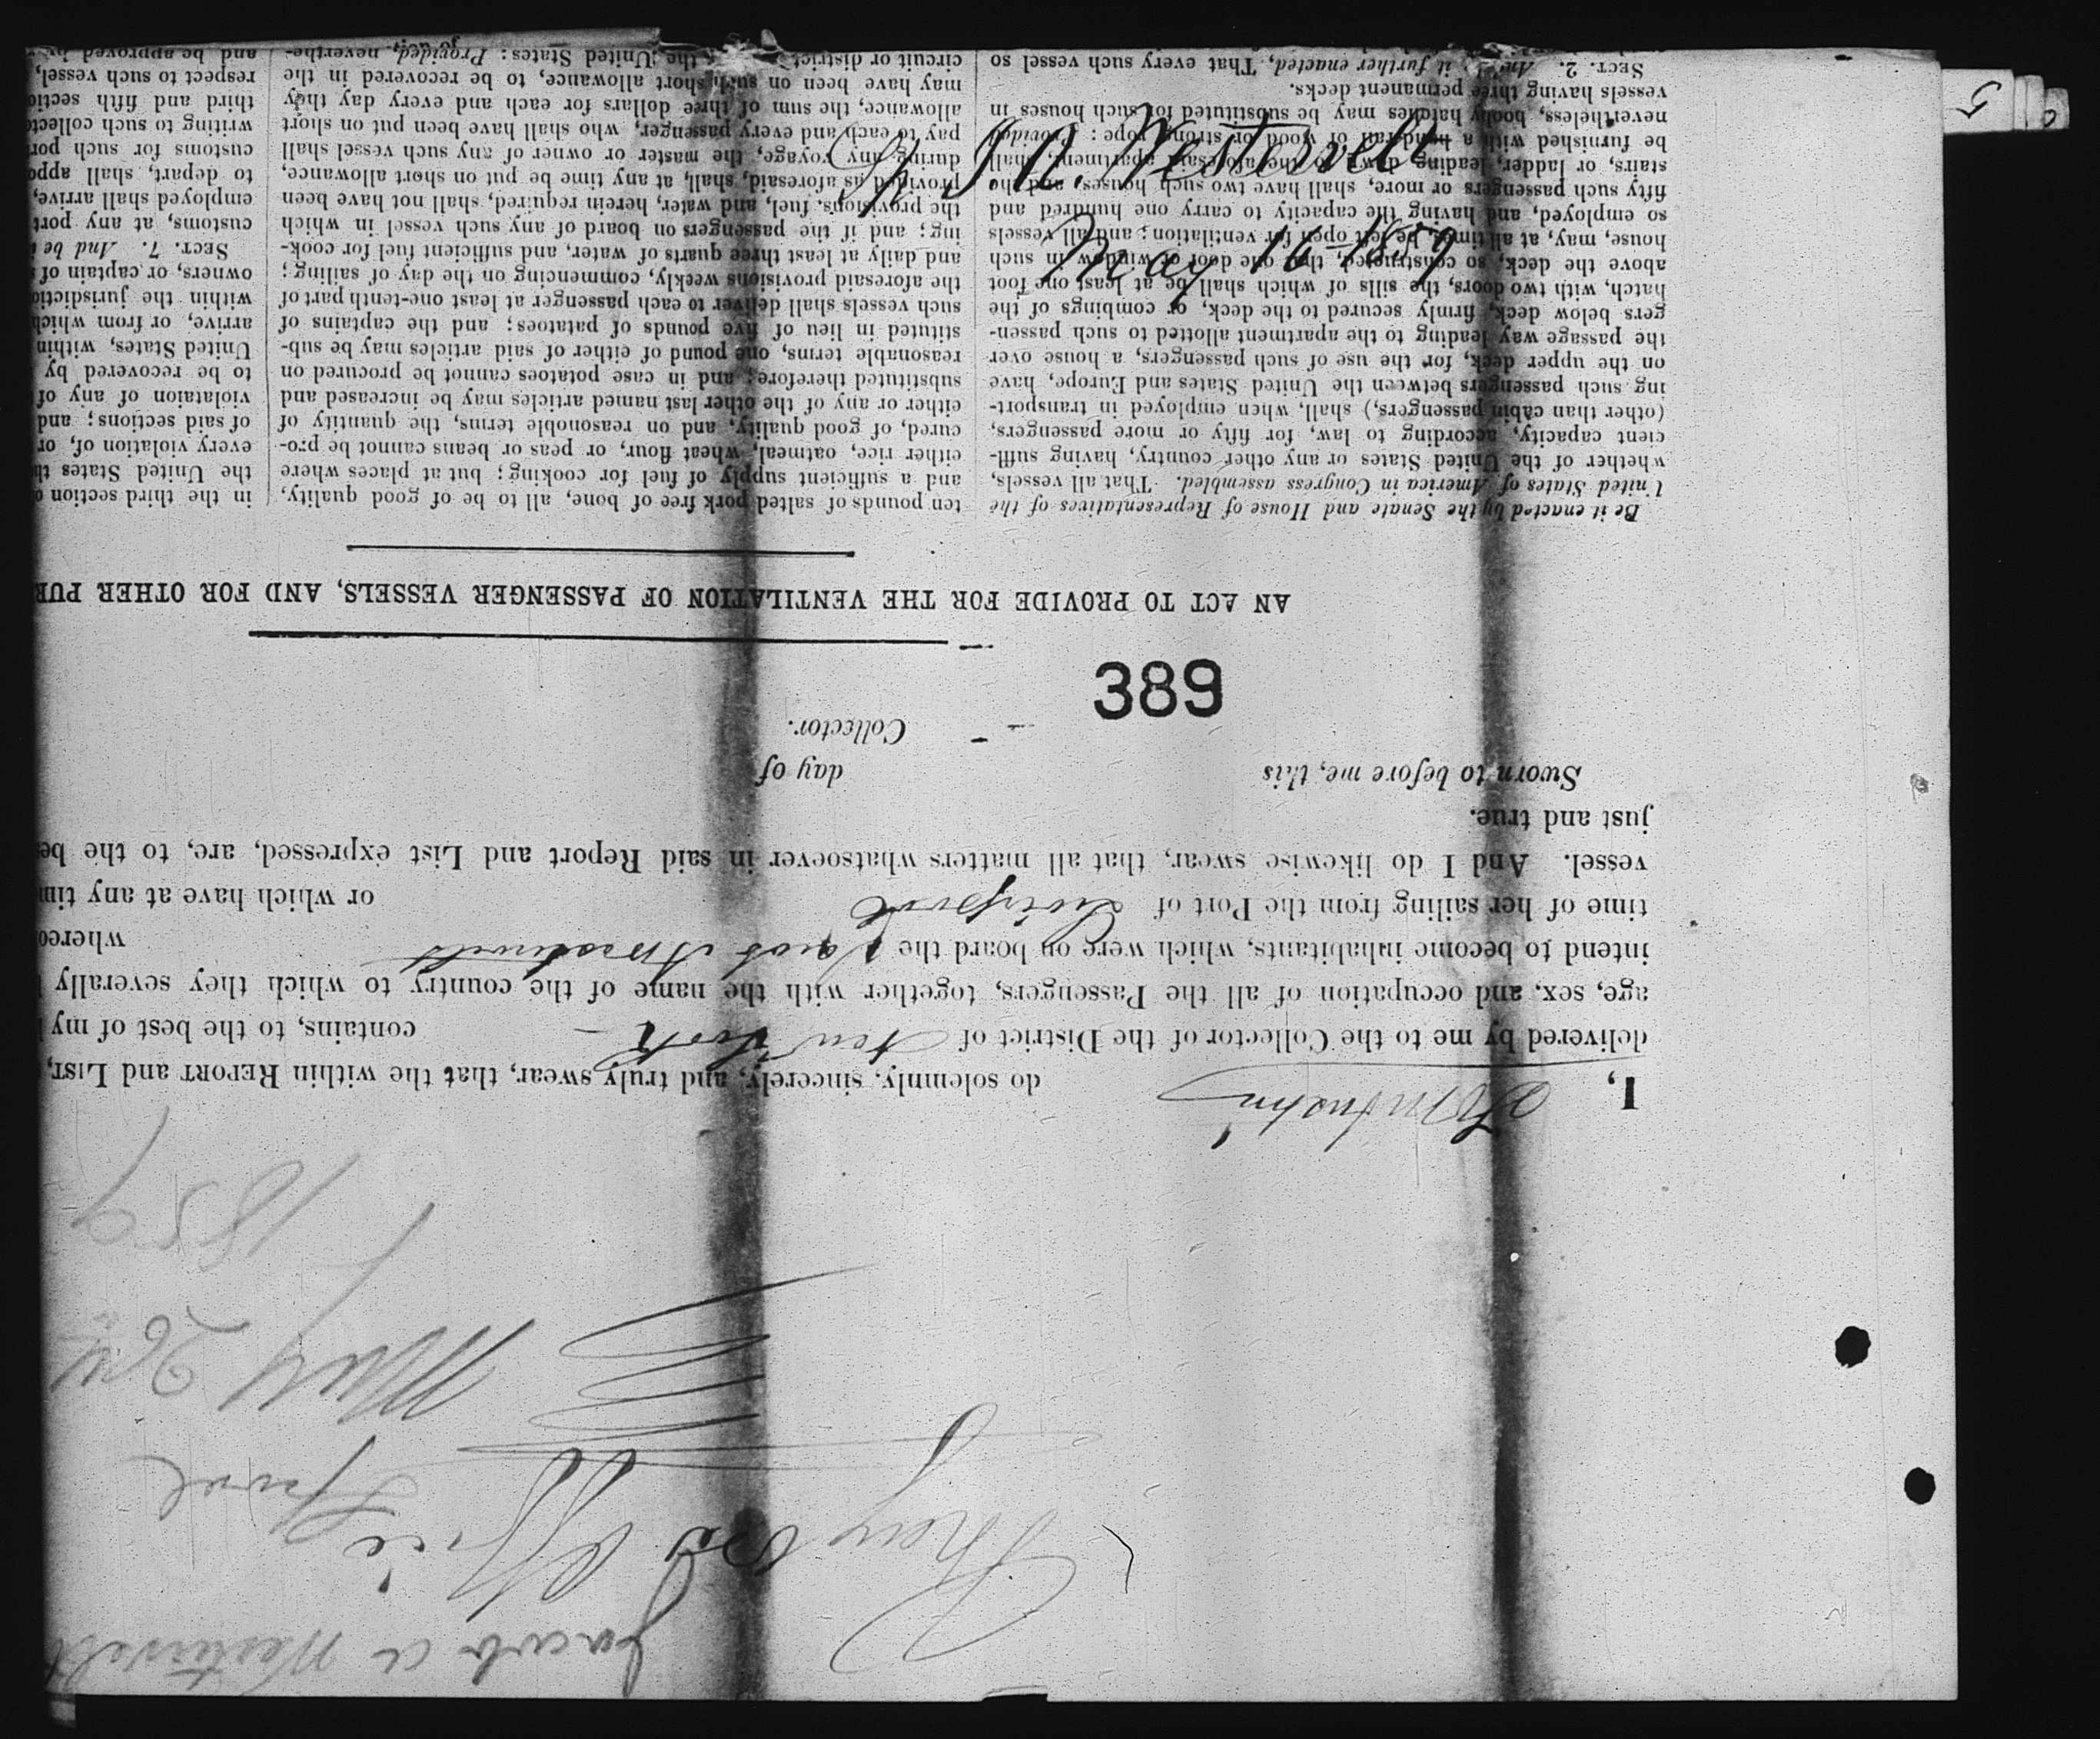 Jacob A Westervelt
Office
Lpool
May 26th
1859
I,
do solemnly, sincerely, and truly swear, that the within REPORT and LIST,
delivered by me to the Collector of the District of New York contains, to the best of my
age, sex, and occupation of all the Passengers, together with the name of the country to which they severally
intend to become inhabitants, which were on board the where
time of her sailing from the Port of Liverpool or which have at any
vessel. And I do likewise swear, that all matters whatsoever in said Report and List expressed, are, to the
just and true.
Sworn to before me, this day of
Collector.
389
AN ACT TO PROVIDE FOR THE VENTILATION OF PASSENGER VESSELS, AND FOR OTHER PUR
Be it enacted by the Senate and House of Representatives of the
United States of America in Congress assembled. That all vessels,
whether of the United States or any other country, having suffi-
cient capacity, according to law, for fifty or more passengers,
(other than cabin passengers,) shall, when employed in transport-
ing such passengers between the United States and Europe, have
on the upper deck, for the use of such passengers, a house over
the passage way leading to the apartment allotted to such passen-
gers below deck, firmly secured to the deck, or combings of the
hatch, with two doors, the sills of which shall be at least one foot
above the deck, so constructed, that one door or window in such
house, may, at all times, be left open for ventilation; and all vessels
so employed, and having the capacity to carry one hundred and
fifty such passengers or more, shall have two such houses, and the
stairs, or ladder, leading down to the aforesaid apartment, shall
be furnished with a hand-rail of wood or strong rope: Provided
nevertheless, booby hatches may be substituted for such houses in
vessels having three permanent decks.
SECT. 2. And be it further enacted, That every such vessel so
ten pounds of salted pork free of bone, all to be of good quality,
and a sufficient supply of fuel for cooking; but at places where
either rice, oatmeal, wheat flour, or peas or beans cannot be pro-
cured, of good quality, and on reasonable terms, the quantity of
either or any of the other last named articles may be increased and
substituted therefore; and in case potatoes cannot be procured on
reasonable terms, one pound of either of said articles may be sub-
stituted in lieu of five pounds of patatoes; and the captains of
such vessels shall deliver to each passenger at least one-tenth part of
the aforesaid provisions weekly, commencing on the day of sailing;
and daily at least three quarts of water, and sufficient fuel for cook-
ing; and if the passengers on board of any such vessel in which
the provisions, fuel, and water, herein required, shall not have been
provided as aforesaid, shall, at any time be put on short allowance,
during any voyage, the master or owner of any such vessel shall
pay to each and every passenger, who shall have been put on short
allowance, the sum of three dollars for each and every day they
may have been on such short allowance, to be recovered in the
circuit or district the United States: Provided, neverthe-
in the third section
the United States
every violation of, or
of said sections; and
violataion of any of
to be recovered by
United States, within
arrive, or from which
within the jurisdiction
owners, or captain of
SECT. 7. And be
customs, at any port
employed shall arrive,
to depart, shall
customs for such
writing to such
third and fifth
respect to such vessel,
and be approved
Sh J A. Westervelt
May 16-1859
5